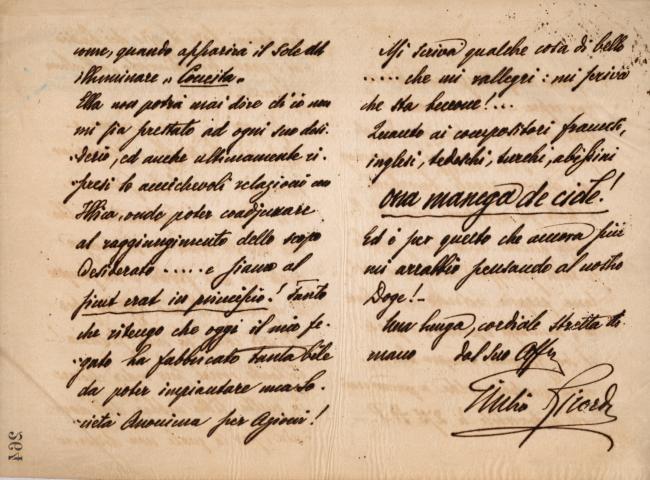 ome, quando apparirà il sole ad
illuminare „Concita„
Ella non potrà mai dire ch'io non
mi sia prestato ad ogni suo desi-
derio, ed anche ultimamente ri-
presi le amichevoli relazioni con
Illica, onde poter coadjuvare
al raggiungimento dello scopo
desiderato ..... e siamo al
sicut erat in principio! Tanto
che ritengo che oggi il mio fe-
gato ha fabbricato tanta bile
da poter impiantare una So-
cietà Anonima per Azioni!
Mi scriva qualche cosa di bello
..... che mi rallegri: mi scriva
che sta benone!...
Quanto ai compositori francesi,
inglesi, tedeschi, turchi, abissini
ona manega de ciole!
Ed è per questo che ancora più
mi arrabbio pensando al nostro
Doge!–
Una lunga, cordiale stretta di
mano dal Suo Aff.
Giulio Ricordi
264